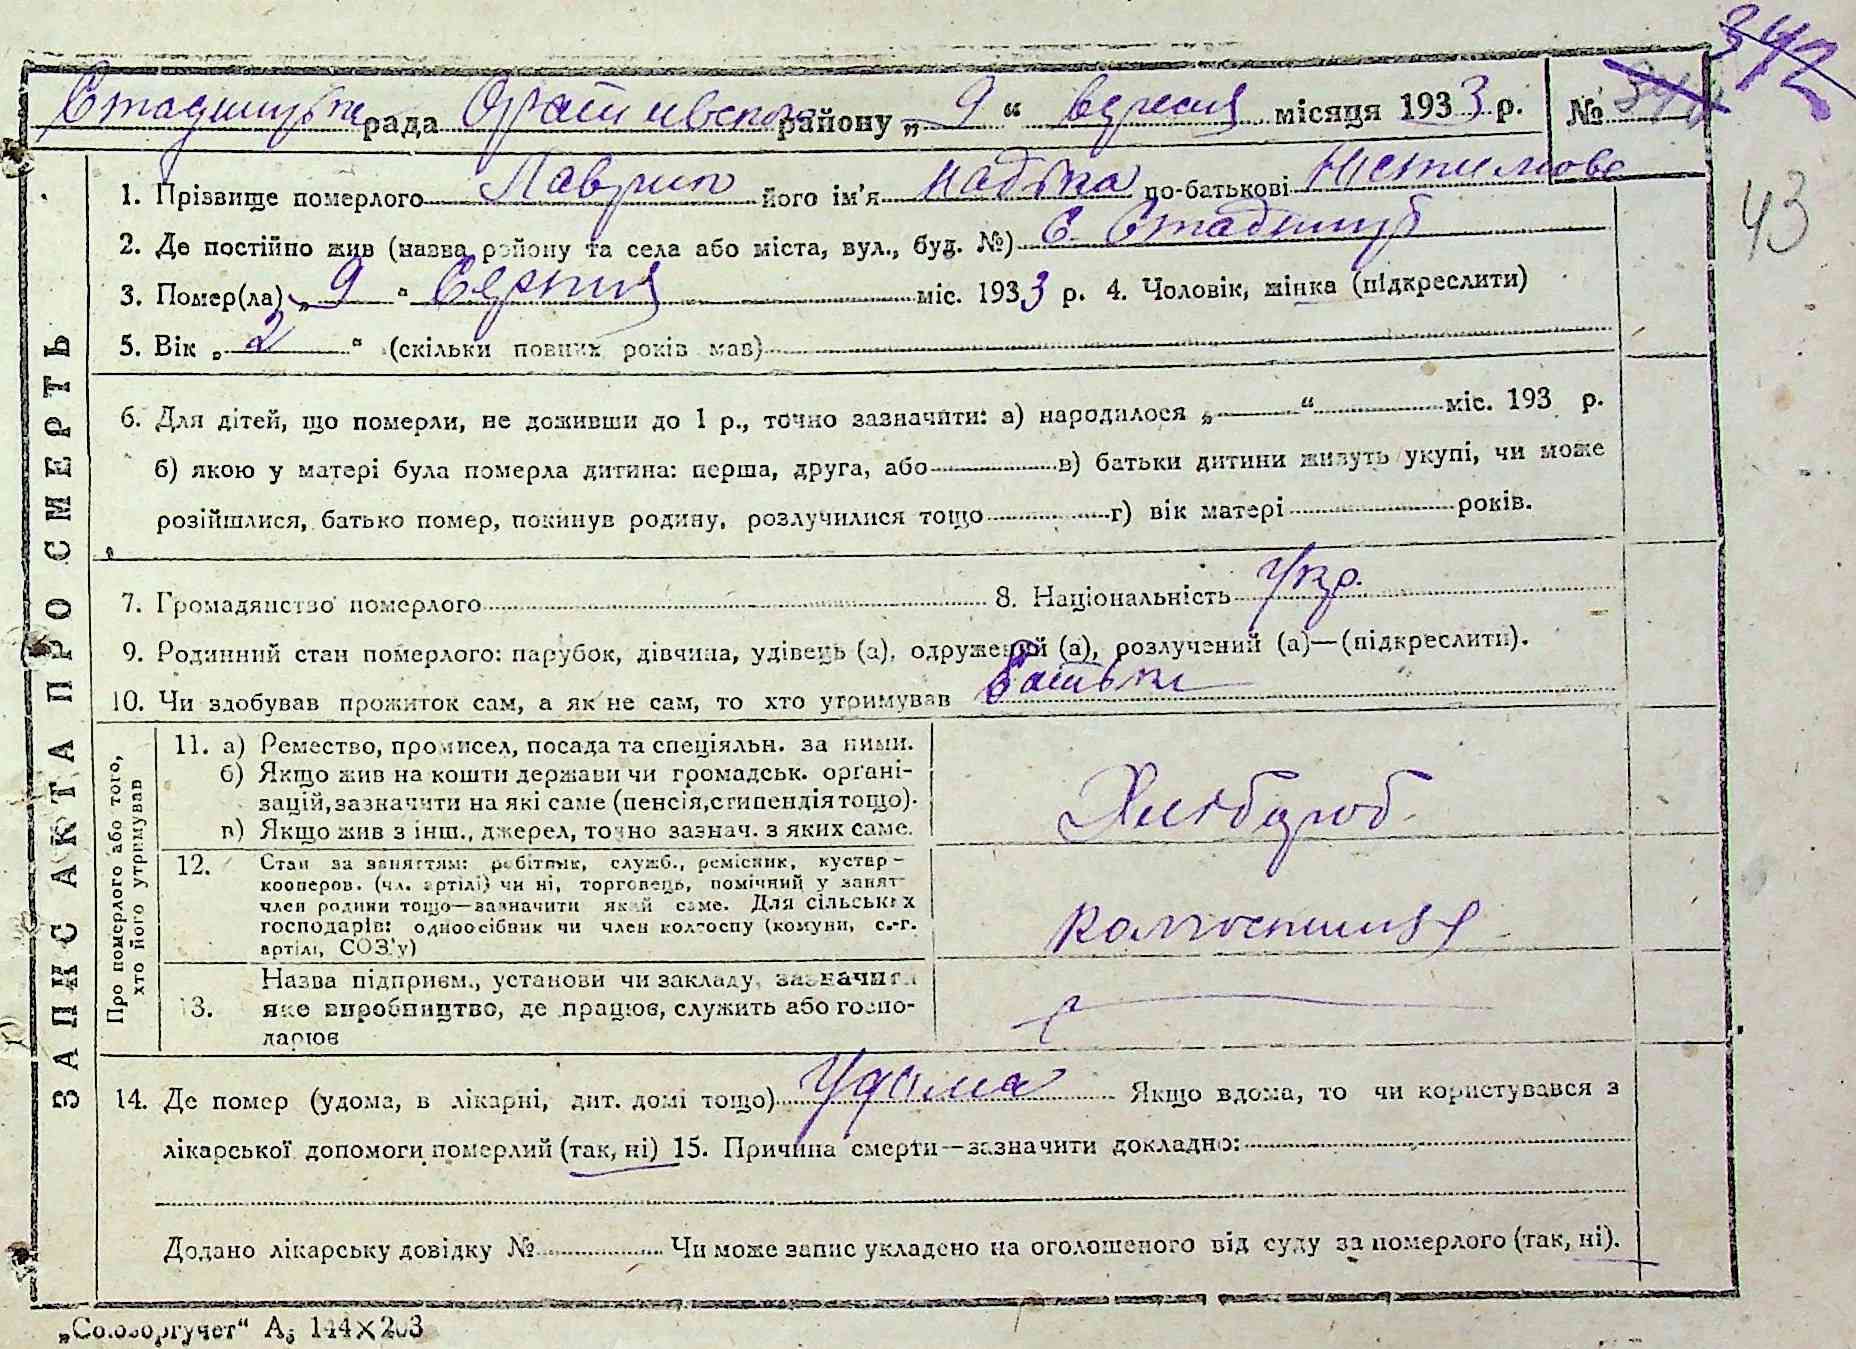 342
рада Оратівського району „ 9 “ вересня місяця 1933 р. №
43
1. Прізвище померлого Лаврик його ім'я Надька по-батькові
2. Де постійно жив (назва району та села або міста, вул., буд. №) с.
3. Помер(ла) „ 9 “ Серпня міс. 1933 р. 4. Чоловік, жінка (підкреслити)
5. Вік „ 2 “ (скільки повних років мав)
6. Для дітей, що померли, не доживши до 1 р., точно зазначити: а) народилося „ “ міс. 193 р.
б) якою у матері була померла дитина: перша, друга, або в) батьки дитини живуть укупі, чи може
розійшлися, батько помер, покинув родину, розлучилися тощо г) вік матері років.
7. Громадянство померлого 8. Національність Укр.
9. Родинний стан померлого: парубок, дівчина, удівець (а), одружений (а), розлучений (а)—(підкреслити).
10. Чи здобував прожиток сам, а як не сам, то хто утримував батьки
ЗАПИС АКТА ПРО СМЕРТЬ
Про померлого або того,
хто його утримував
11. а) Ремество, промисел, посада та спеціяльн. за ними.
б) Якщо жив на кошти держави чи громадськ. органі-
зацій, зазначити на які саме (пенсія, стипендія тощо).
в) Якщо жив з інш., джерел, точно зазнач. з яких саме.
Хлібороб
12. Стан за заняттям: робітник, служб., ремісник, кустар-
кооперов. (чл. артілі) чи ні, торговець, помічний у занят
член родини тощо—зазначити який саме. Для сільських
господарів: одноосібник чи член колгоспу (комуни, с.-г.
артілі, СОЗ'у)
13. Назва підприєм., установи чи закладу, зазначити
яке виробництво, де працює, служить або госпо-
дарює
14. Де помер (удома, в лікарні, дит. домі тощо) Удома Якщо вдома, то чи користувався з
лікарської допомоги померлий (так, ні) 15. Причина смерти—зазначити докладно:
Додано лікарську довідку № Чи може запис укладено на оголошеного від суду за померлого (так, ні).
„Союзоргучет“ А₅ 144×203